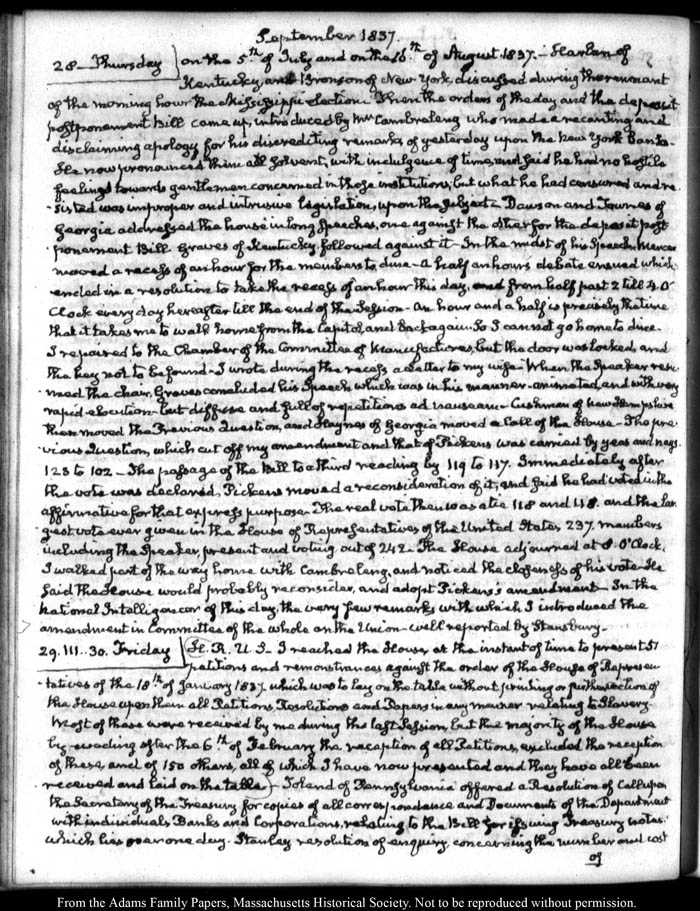 September 1837.
28. Thursday on the 5th of July and on the 16th of August 1837. Harlan of
Kentucky and Bronson of New York discussed during the remnant
of the morning hour the Mississippi election. Then the orders of the day and the deposit
postponement Bill came up, introduced by Mr Cambreleng who made a recanting and
disclaiming apology for his discrediting remarks of yesterday upon the New York Banks.
He now pronounced them all solvent, with indulgence of time, and said he had no hostile
feelings towards gentlemen concerned in those institutions, but what he had censured and re-
sisted was improper and intrusive legislation, upon the subject. Dawson and Townes of
Georgia addressed the house in long Speeches, one against the other for the deposit post-
ponement Bill. Graves of Kentucky followed against it. In the midst of his Speech, Mercer
moved a recess of an hour for the members to dine. A half an hour's debate ensued which
ended in a resolution to take the recess of an hour this day, and from half past 2 till 4 O'
Clock every day hereafter till the end of the Session. An hour and a half is precisely the time
that it takes me to walk home from the Capitol, and back again. So I cannot go home to dine.
I repaired to the Chamber of the Committee of Manufactures, but the door was locked, and
the key not to be found. I wrote during the recess a letter to my wife. When the Speaker resu-
med the chair, Graves concluded his Speech which was in his manner animated, and with very
rapid elocution but diffuse and full of repetitions ad nauseam. Cushman of New Hampshire
then moved the Previous Question, and Haynes of Georgia moved a Call of the House. The pre-
vious Question, which cut off my amendment and that of Pickens was carried by yeas and nays.
123 to 102. The passage of the Bill to a third reading by 119 to 117. Immediately after
the vote was declared, Pickens moved a reconsideration of it, and said he had voted in the
affirmative for that express purpose. The real vote then was a tie 118 and 118. and the lar-
gest vote ever given in the House of Representatives of the United States, 237. members
including the Speaker, present and voting out of 242. The House adjourned at 8. O'Clock.
I walked part of the way home with Cambreleng, and noticed the closeness of his vote. He
said the House would probably reconsider, and adopt Pickens's amendment. In the
National Intelligencer of this day, the very few remarks with which I introduced the
amendment in Committee of the whole on the Union well reported by Stansbury.
29. III..30. Friday H. R. U S. I reached the House, at the instant of time to present 51
petitions and remonstrances against the order of the House of Represen-
tatives of the 18th of January 1837 which was to lay on the table without printing or further action of
the House upon them all Petitions, Resolutions and Papers in any manner relating to Slavery.
Most of these were received by me during the last Session, but the majority of the House
by evading after the 6th of February the reception of all Petitions, excluded the reception
of these, and of 150 others, all of which I have now presented and they have all been
received and laid on the table. Toland of Pennsylvania offered a Resolution of Call upon
the Secretary of the Treasury for copies of all correspondence and Documents of the Department
with individuals Banks and Corporations, relating to the Bill for issuing Treasury notes.
which lies over one day. Stanley resolution of enquiry, concerning the number and cost
of
From the Adams Family Papers, Massachusetts Historical Society. Not to be reproduced without permission.